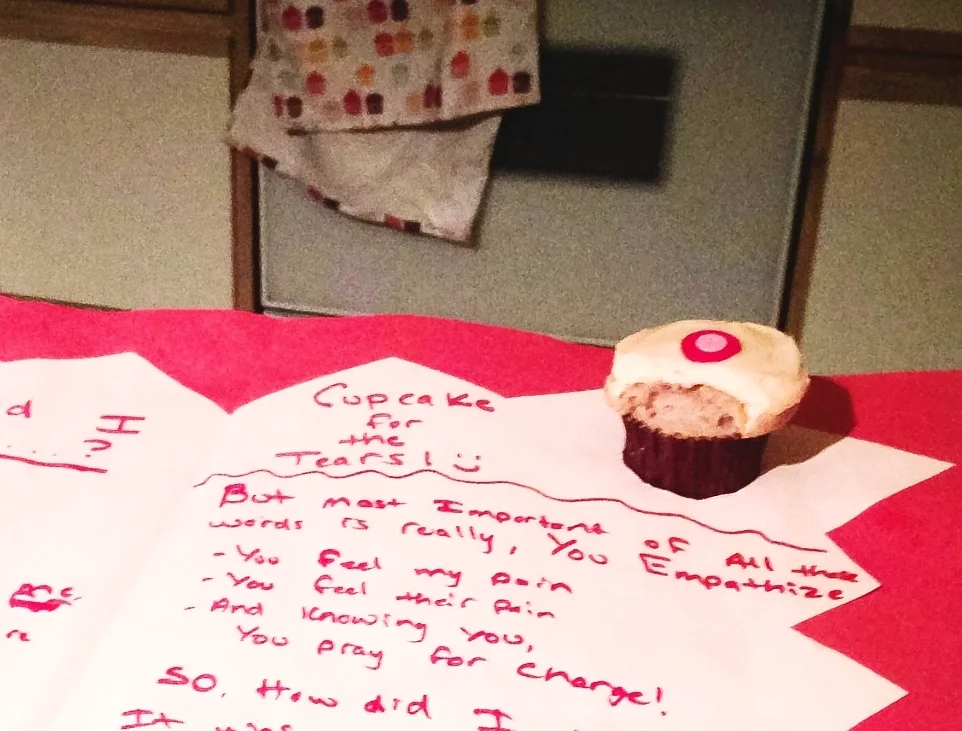 d I
....?
me
re
Cupcake
for
the
Tears! :)
But most Important of All those
words is really, You Empathize
- You feel my pain
- You feel their pain
- And knowing you,
You pray for change!
So, How did I
It